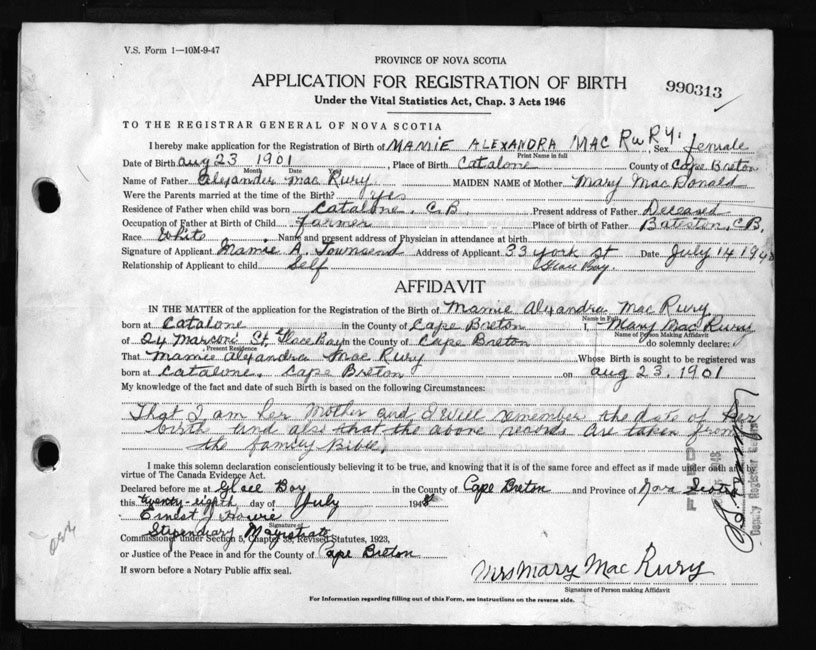 V.S. Form 1—10M-9-47
PROVINCE OF NOVA SCOTIA
APPLICATION FOR REGISTRATION OF BIRTH
990313
Under the Vital Statistics Act, Chap. 3 Acts 1946
TO THE REGISTRAR GENERAL OF NOVA SCOTIA
I hereby make application for the Registration of Birth of MAMIE ALEXANDRA MAC RURY. Sex female
Print Name in full
Date of Birth Aug 23 1901 Place of Birth Catalone County of Cape Breton
Month Date Year
Name of Father Alexander Mac Rury MAIDEN NAME of Mother Mary MacDonald
Were the Parents married at the time of the Birth? Yes
Residence of Father when child was born Catalone. C.B. Present address of Father Deceased
Occupation of Father at Birth of Child Farmer Place of birth of Father Bateston, C.B.
Race White Name and present address of Physician in attendance at birth
Signature of Applicant Mamie A. Townsend Address of Applicant 33 York St Date July 14 1948
Relationship of Applicant to child Self Glace Bay.
AFFIDAVIT
IN THE MATTER of the application for the Registration of the Birth of Mamie Alexandra Mac Rury
Name in Full
born at Catalone in the County of Cape Breton I, Mary Mac Rury
Name of Person Making Affidavit
of 24 Marconi St. Glace Bay in the County of Cape Breton do solemnly declare:
Present Residence
That Mamie Alexandra Mac Rury Whose Birth is sought to be registered was
born at Catalone, Cape Breton on Aug 23. 1901
My knowledge of the fact and date of such Birth is based on the following Circumstances:
That I am her Mother and I well remember the date of her
birth and also that the above records are taken from
the family Bible.
I make this solemn declaration conscientiously believing it to be true, and knowing that it is of the same force and effect as if made under oath and by
virtue of The Canada Evidence Act.
Declared before me at Glace Bay in the County of Cape Breton and Province of Nova Scotia
this twenty-eighth day of July 1948
Ernest J Howie
Signature of
Stipendiary Magistrate
Commissioner under Section 5, Chapter 38, Revised Statutes, 1923,
or Justice of the Peace in and for the County of Cape Breton
If sworn before a Notary Public affix seal.
Mrs Mary Mac Rury
Signature of Person making Affidavit
For Information regarding filling out of this Form, see instructions on the reverse side.
FILED
Deputy Registrar General